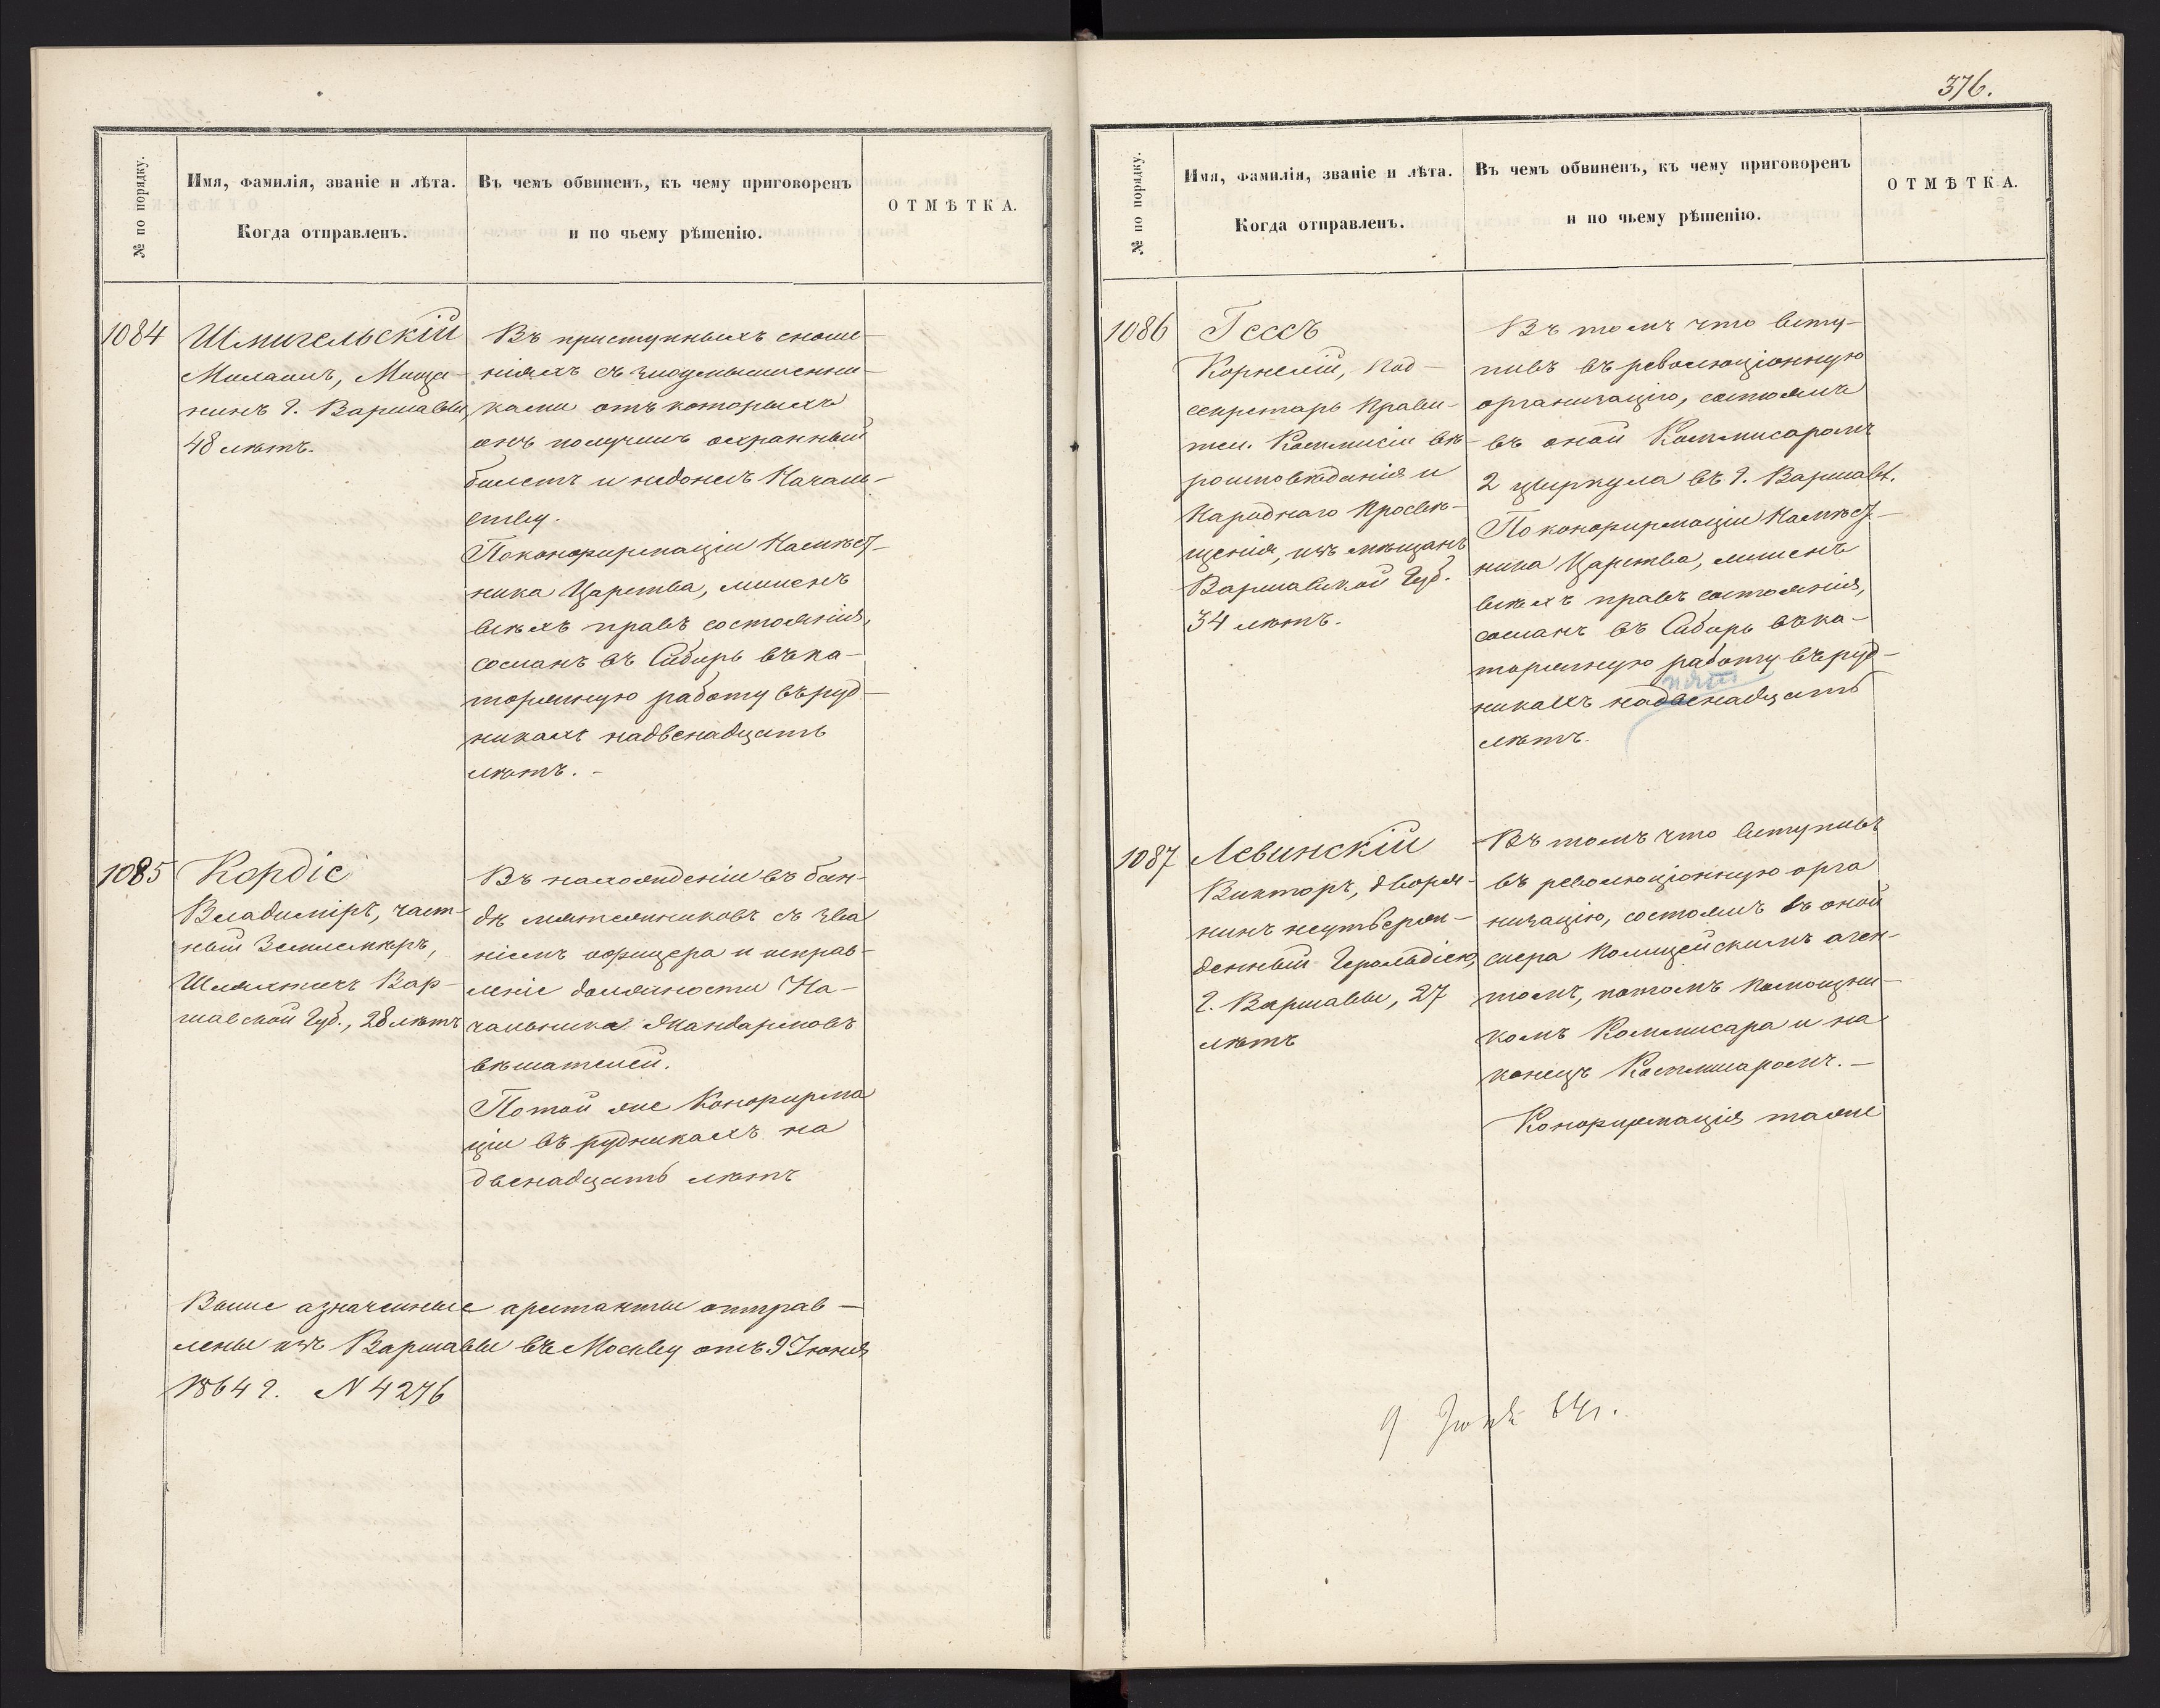 № по порядку.
Имя, фамилія, званіе и лѣта.
Когда отправленъ.
Въ чемъ обвиненъ, къ чему приговоренъ
и по чьему рѣшенію.
ОТМѢТКА.
1084
Шмигельскій
Миланъ, Мища-
нинъ г. Варшавы,
48 лѣтъ.
Въ приступныхъ сноше-
ніяхъ съ злоумышленни-
ками отъ которыхъ
онъ получилъ охранный
билетъ и недонелъ Началь-
ству.
По конфирмаціи Намѣст-
ника Царства, лишенъ
всѣхъ правъ состоянія,
сосланъ въ Сибирь въ ка-
торжную работу въ руд-
никахъ на двенадцать
лѣтъ. -
1085
Кордіс
Владиміръ, част-
ный Землемѣръ,
Шляхтичъ Вар-
шавской Губ., 28 лѣтъ
Въ нахожденіи въ бан-
дѣ мятежниковъ съ зва
ніемъ офицера и исправ-
леніе должности На-
чальника Жандармовъ
вѣшателей.
По той же Конфирма
ціи въ рудникахъ на
двенадцать лѣтъ
Выше азначенные арестанты отправ-
лены изъ Варшавы въ Москву отъ 9 Іюня
1864 г. N 4276
376.
№ по порядку.
Имя, фамилія, званіе и лѣта.
Когда отправленъ.
Въ чемъ обвиненъ, къ чему приговоренъ
и по чьему рѣшенію.
ОТМѢТКА.
1086
Гессъ
Корнелій, Под-
секретарь Прави-
тел. Коммисіи вѣ-
роисповѣданія и
Народнаго Просвѣ-
щенія, изъ мѣщанъ
Варшавской Губ.
34 лѣтъ.
Въ томъ что всту-
пивъ въ революціонную
организацію, состоялъ
въ оной Коммисаромъ
2 циркула въ г. Варшавѣ.
По конфирмаціи Намѣст-
ника Царства, лишенъ
всѣхъ правъ состоянія,
сосланъ въ Сибирь въ ка-
торжную работу въ руд-
пять
никахъ на двенадцать
лѣтъ.
1087
Левинскій
Викторъ, дворя-
нинъ неутверж-
денный Герольдіею,
г. Варшавы, 27
лѣтъ
Въ томъ что вступивъ
въ революціонную орга
низацію, состоялъ въ оной
сперва Полицейскимъ аген-
томъ, потомъ Помощни-
комъ Коммисара и на
конецъ Коммисаромъ. -
Конфирмація таже
9 Іюня 64 г.